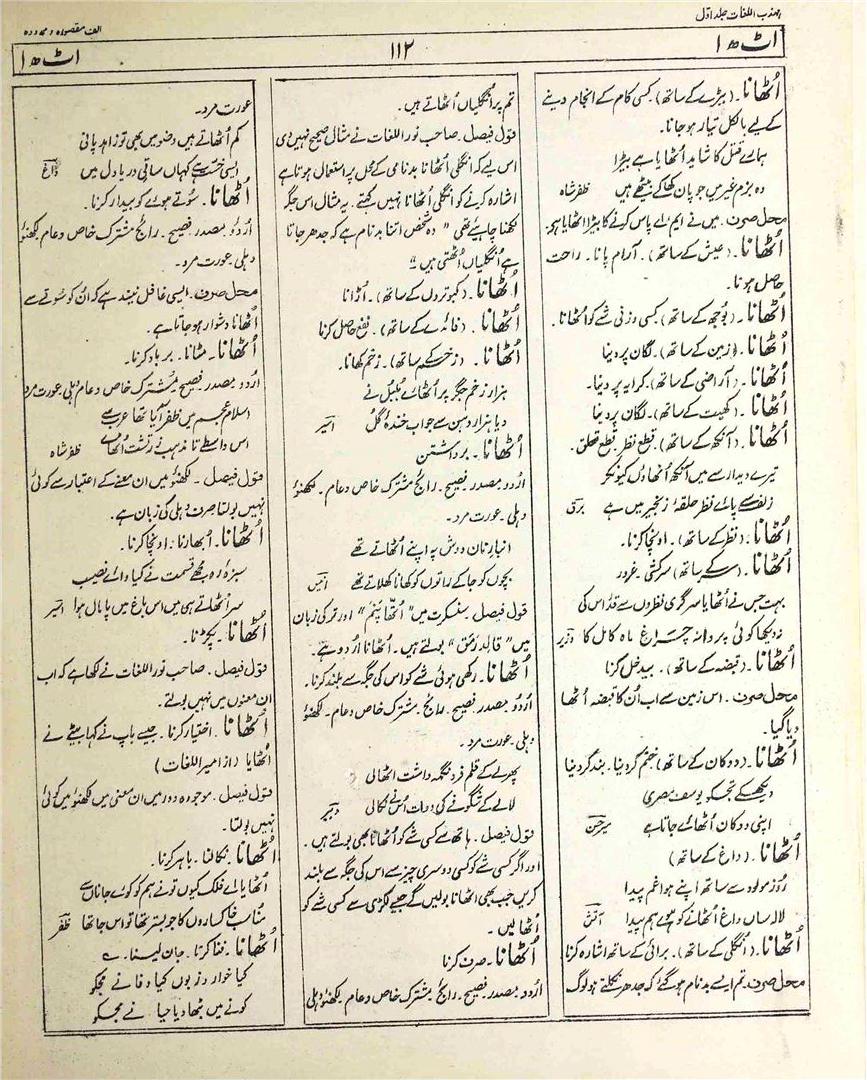 مہذب اللغات جلد اول
الف مقصورہ و ممدودہ
اٹھا
۱۱۲
اٹھا
اُٹھانا۔ (بیڑے کے ساتھ)۔ کسی کام کے انجام دینے
کے لیے بالکل تیار ہو جانا۔
ہمارے قتل کا شاید اُٹھایا ہے بیڑا
وہ بزم غیر میں جو پان کھا کے بیٹھے ہیں ظفر شاہ
محل صرف۔ میں نے ایم۔ اے پاس کرنے کا بیڑا اٹھایا ہے۔
اُٹھانا۔ (عیش کے ساتھ)۔ آرام پانا۔ راحت
حاصل ہونا۔
اُٹھانا۔ (بوجھ کے ساتھ) کسی وزنی شے کو اُٹھانا۔
اُٹھانا۔ (زمین کے ساتھ)۔ لگان پر دینا
اُٹھانا۔ (آراضی کے ساتھ)۔ کرایہ پر دینا۔
اُٹھانا۔ (کھیت کے ساتھ)۔ لگان پر دینا
اُٹھانا۔ (آنکھ کے ساتھ)۔ قطع نظر۔ قطع تعلق۔
تیرے دیدار سے میں آنکھ اُٹھاؤں کیونکر
زلف سے پائے نظر حلقۂ زنجیر میں ہے برق
اُٹھانا۔ (نظر کے ساتھ)۔ اونچا کرنا۔
اُٹھانا۔ (سر کے ساتھ) سرکشی۔ غرور
بہت جس نے اُٹھایا سر گری نظروں سے قدر اس کی
نہ دیکھا کوئی پروانہ چراغ ماہ کامل کا وزیر
اُٹھانا۔ (قبضہ کے ساتھ)۔ بیدخل کرنا
محل صرف۔ اس زمین سے اب اُن کا قبضہ اُٹھا
دیا گیا۔
اُٹھانا۔ (دوکان کے ساتھ) ختم کر دینا۔ بند کر دینا
دیکھ کے تجھ کو یوسف مصری
اپنی دوکان اُٹھائے جاتا ہے میر حسن
اُٹھانا۔ (داغ کے ساتھ)
روز مولود سے ساتھ اپنے ہوا غم پیدا
لالہ ساں داغ اُٹھانے کو ہوئے ہم پیدا آتش
اُٹھانا۔ (اُنگلی کے ساتھ)۔ برائی کے ساتھ اشارہ کرنا
محل صرف۔ تم ایسے بدنام ہو گئے کہ جدھر نکلتے ہو لوگ
تم پر اُنگلیاں اُٹھاتے ہیں۔
قول فیصل۔ صاحب نور اللغات نے مثال صحیح نہیں دی
اس لیے کہ انگلی اُٹھانا بدنامی کے محل پر استعمال ہوتا ہے
اشارہ کرنے کو انگلی اُٹھانا نہیں کہتے۔ یہ مثال اس جگہ
لکھنا چاہیے تھی "وہ شخص اتنا بدنام ہے کہ جدھر جاتا
ہے اُنگلیاں اُٹھتی ہیں"
اُٹھانا۔ (کبوتروں کے ساتھ)۔ اُڑانا
اُٹھانا۔ (فائدے کے ساتھ)۔ نفع حاصل کرنا
اُٹھانا۔ (زخم کے ساتھ)۔ زخم کھانا۔
ہزار زخم جگر پر اُٹھائے بلبل نے
دیا ہزار دہن سے جواب خندۂ گل امیر
اُٹھانا۔ برداشتن
اُردو مصدر۔ فصیح۔ رائج مشترک خاص و عام۔ لکھنؤ
دہلی۔ عورت مرد۔
انبار نان دوش پہ اپنے اُٹھاتے تھے
بچوں کو جا کے راتوں کو کھانا کھلاتے تھے انیس
قول فیصل۔ سنسکرت میں "اُتھاپنم" اور تر کی زبان
میں بولتے ہیں۔ اُٹھانا اردو ہے۔
اُٹھانا۔ رکھی ہوئی شے کو اس کی جگہ سے بلند کرنا۔
اُردو مصدر۔ فصیح۔ رائج۔ مشترک خاص و عام۔ لکھنؤ
دہلی۔ عورت مرد۔
چہرے کے قلم فرد نگہداشت اٹھا لی
لالے کے شگوفے کی دوات اُس نے نکالی دبیر
قول فیصل۔ ہاتھ سے کسی شے کو اُٹھانا بھی بولتے ہیں۔
اور اگر کسی شے کو کسی دوسری چیز سے اس کی جگہ سے بلند
کریں جب بھی اٹھانا بولیں گے جیسے لکڑی سے کسی شے کو
اُٹھا لیں۔
اُٹھانا۔ صرف کرنا
اُردو مصدر۔ فصیح۔ رائج۔ مشترک خاص و عام لکھنؤ دہلی
عورت مرد۔
کم اُٹھاتے ہیں وضو میں بھی تو زاہد پانی
ایسی خست ہے کہاں ساقی دریا دل میں داغ
اُٹھانا۔ سوتے ہوئے کو بیدار کرنا۔
اُردو مصدر۔ فصیح۔ رائج مشترک خاص و عام لکھنؤ
دہلی۔ عورت مرد۔
محل صرف۔ ایسی غافل نیند ہے کہ اُن کو سوتے سے
اُٹھانا دشوار ہو جاتا ہے۔
اُٹھانا۔ مٹانا۔ برباد کرنا۔
اُردو مصدر۔ فصیح مشترک خاص و عام دہلی عورت مرد
اسلام عجم میں ظفر آیا تھا عرب سے
اس واسطے تا مذہب زرتشت اُٹھا دے ظفر شاہ
قول فیصل۔ لکھنؤ میں ان معنے کے اعتبار سے کوئی
نہیں بولتا صرف دہلی کی زبان ہے۔
اُٹھانا۔ اُبھارنا: اونچا کرنا۔
سبزۂ رہ مجھے قسمت نے کیا وائے نصیب
سر اُٹھاتے ہی میں اس باغ میں پامال ہوا امیر
اُٹھانا۔ پکڑنا۔
قول فیصل۔ صاحب نور اللغات نے لکھا ہے کہ اب
ان معنوں میں نہیں بولتے۔
اُٹھانا۔ اختیار کرنا۔ جیسے باپ نے کہا بیٹے نے
اُٹھایا (از امیر اللغات)
قول فیصل۔ موجودہ دور میں ان معنی میں لکھنؤ میں کوئی
نہیں بولتا۔
اُٹھانا۔ نکالنا۔ باہر کرنا۔
اُٹھایا اے فلک کیوں تو نے ہم کو کوئے جاناں سے
مناسب خاکساروں کا جو بستر تھا تو اس جا تھا ظفر
اُٹھانا۔ فنا کرنا۔ جان لینا۔ ے
کیا خوار و زبوں کیا وفا نے مجکو
کونے میں بٹھا دیا حیا نے مجکو